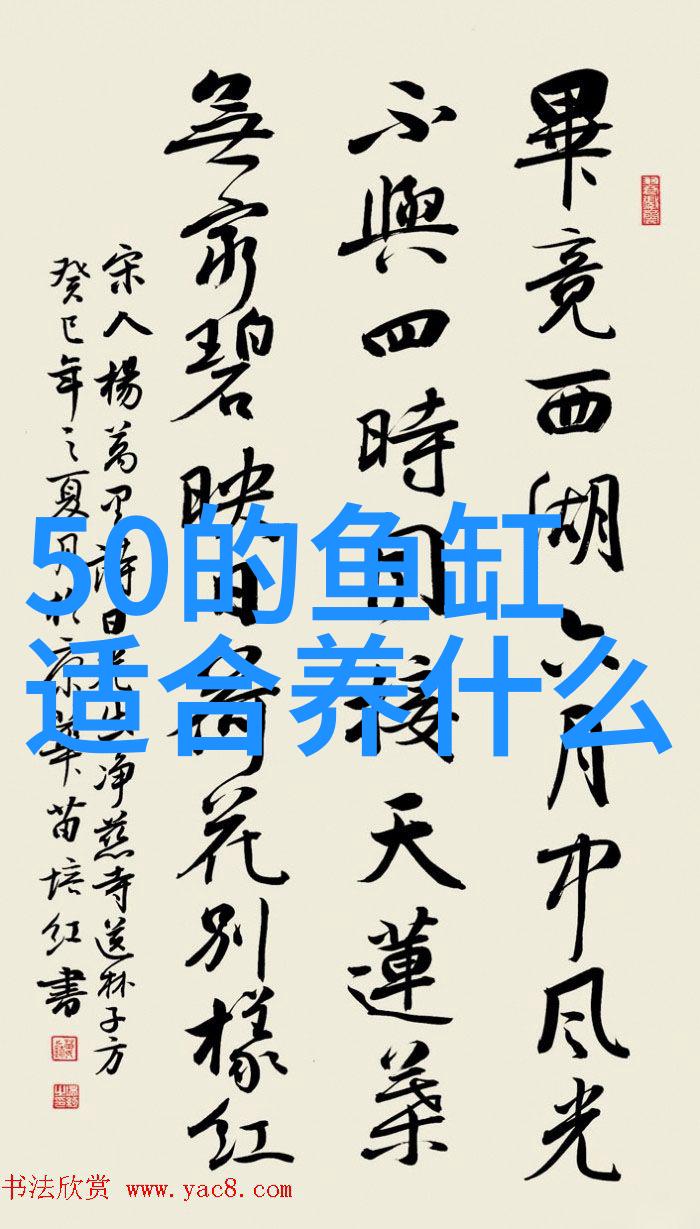 畢竟西湖六月中风光
不與四時同接天蓮葉
無窮碧映日荷花别樣紅
宋人楊萬里詩曰曉出净慈寺送林子方
癸巳年之夏月於京華苗培红書
50的鱼缸
适合养什么
书法欣赏 www.yac8.com